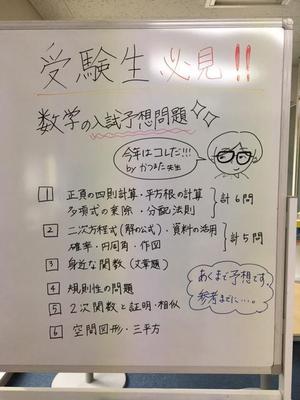 受験生 必見!!
数学の入試予想問題
今年はコレだ!!!
by かつまた先生
1 正負の四則計算・平方根の計算
多項式の乗除・分配法則
計6問
2 二次方程式(解の公式)・資料の活用
確率・円周角・作図
計5問
3 身近な関数(文章題)
4 規則性の問題
5 2次関数と証明・相似
6 空間図形・三平方
あくまで予想です。
参考までに…。